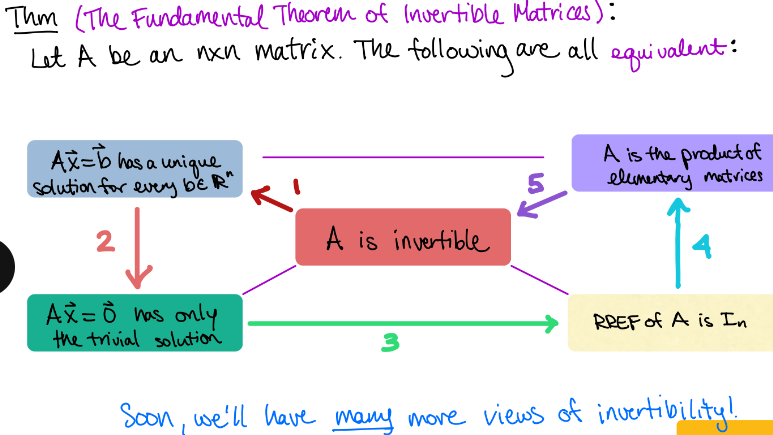 Thm (The Fundamental Theorem of Invertible Matrices):
Let A be an nxn matrix. The following are all equivalent:
Ax⃗=b⃗ has a unique
solution for every b∈ℝⁿ
A is the product of
elementary matrices
1
5
2
A is invertible
4
Ax⃗=0⃗ has only
the trivial solution
3
RREF of A is Iₙ
Soon, we'll have many more views of invertibility!